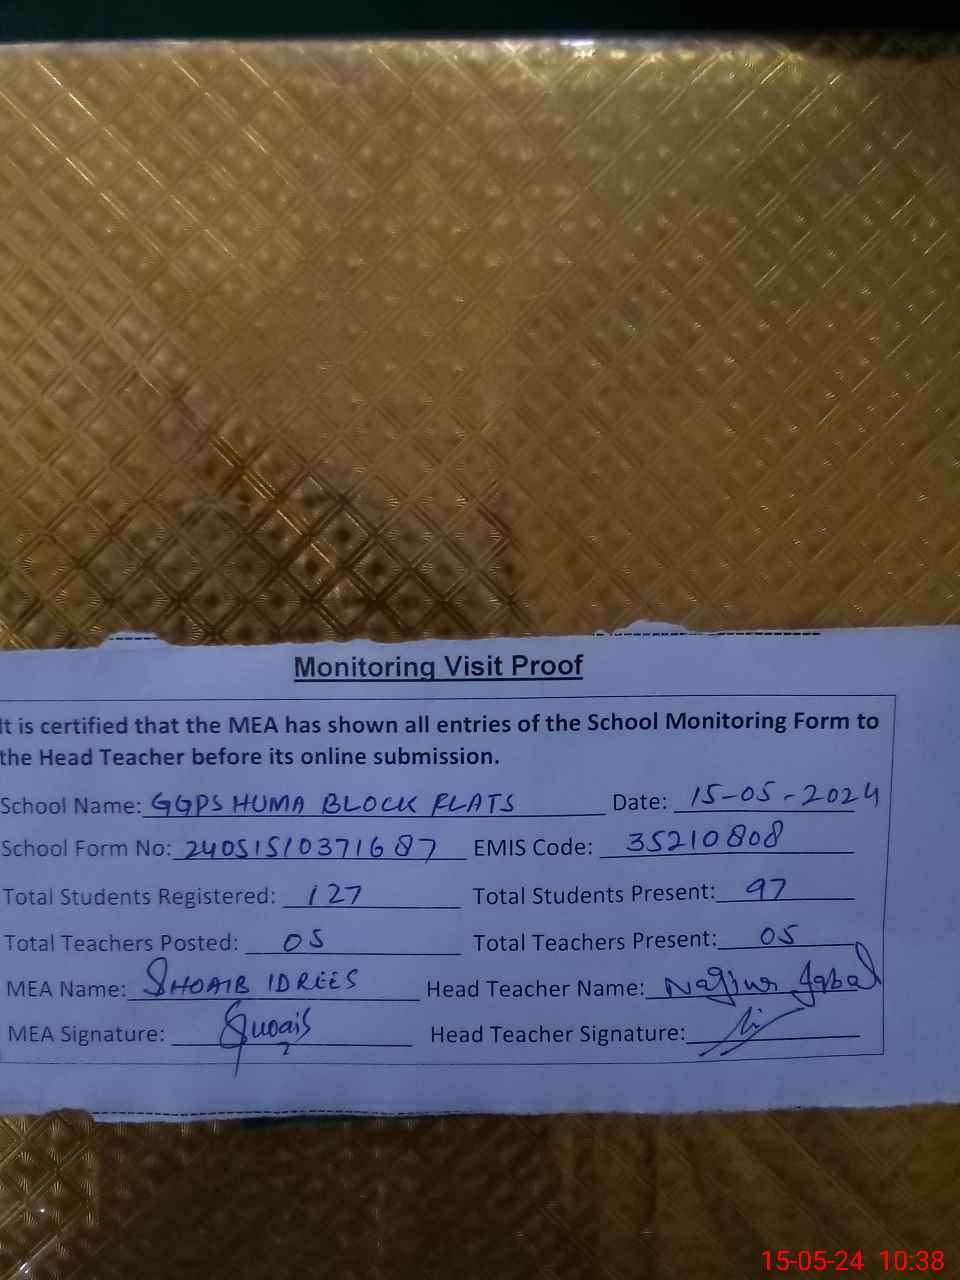 Monitoring Visit Proof
It is certified that the MEA has shown all entries of the School Monitoring Form to
the Head Teacher before its online submission.
School Name: GGPS HUMA BLOCK FLATS Date: 15-05-2024
School Form No: 24051510371687 EMIS Code: 35210808
Total Students Registered: 127 Total Students Present: 97
Total Teachers Posted: 05 Total Teachers Present: 05
MEA Name: SHOAIB IDREES Head Teacher Name: Iqbal
MEA Signature: Shoaib Head Teacher Signature:
15-05-24 10:38